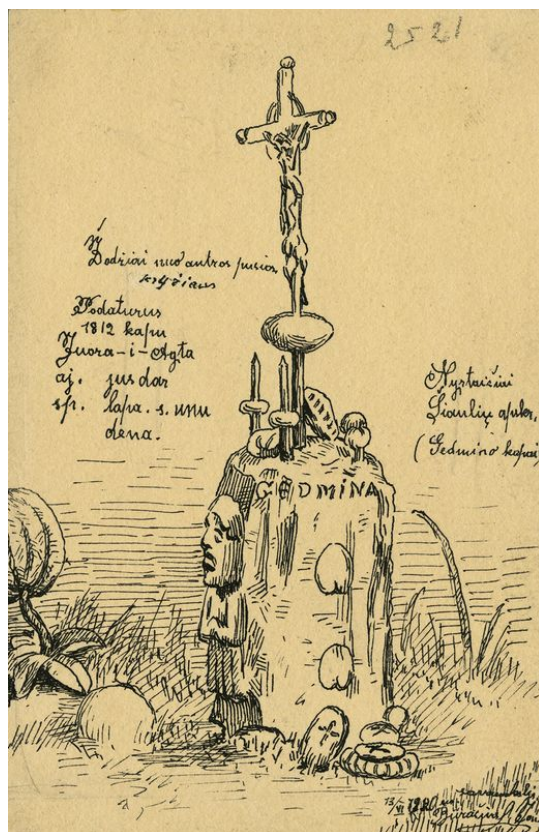 2521
Žodžiai nuo antros pusios
kryžiaus
Podaturus
1812 kapu
Juora-i-Agta
aj. jus dar
sp. lapa. s. unu
dena.
Šiaulių apskr.
(Gedmino kapai)
GEDMINA